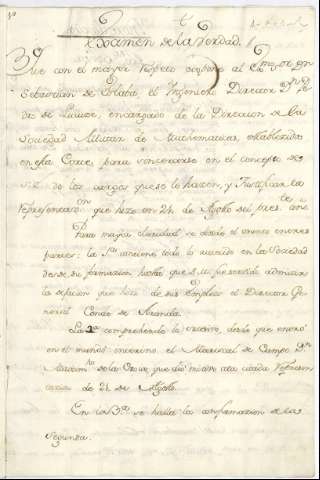 Examen de la Verdad.
Que con el mayor respeto expone al Exmo. Sor. Dn
Sebastian de Eslaba el Ingeniero Director Dn Pe
dro de Lucuze, encargado de la Direccion de la
Sociedad Militar de Mathematicas, establecida
en esta Corte, para convencerse en el concepto de
S.E. de los cargos que se le hacen, y Justificar la
representacion que hizo en 24 de Agosto del preste. año
Para mayor claridad se divide en tres
partes: la 1a. contiene todo lo sucedido en la Sociedad
desde su formacion hasta que S.M. fue servido admitir
la dejacion que hizo de sus Empleos el Director Ge
neral Conde de Aranda.
La 2a comprehende lo ocurrido, desde que entró
en el mando interino el Mariscal de Campo Dn
de la Croix, que dió motivo a la citada Represen
tacion de 24 de Agosto.
En la 3a. se halla la confirmacion de la
segunda.